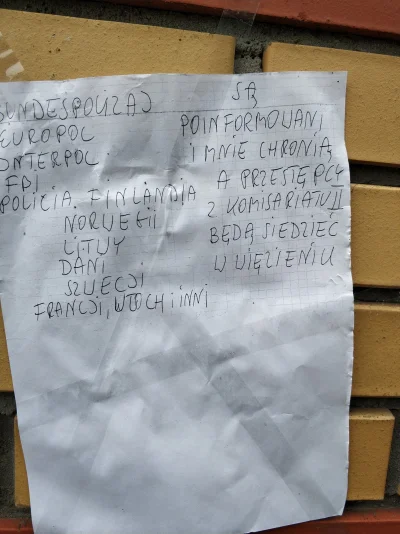 BUNDESPOLIZAJ
EUROPOL
INTERPOL
FDI
POLICIA. FINLANDIA
NORWEGII
LITWY
DANI
SZWECJI
FRANCJI, WŁOCH I INNI
SĄ
POINFORMOWANI
I MNIE CHRONIĄ
A PRZESTĘPCY
Z KOMISARIATU II
BĘDĄ SIEDZIEĆ
W WIĘZIENIU